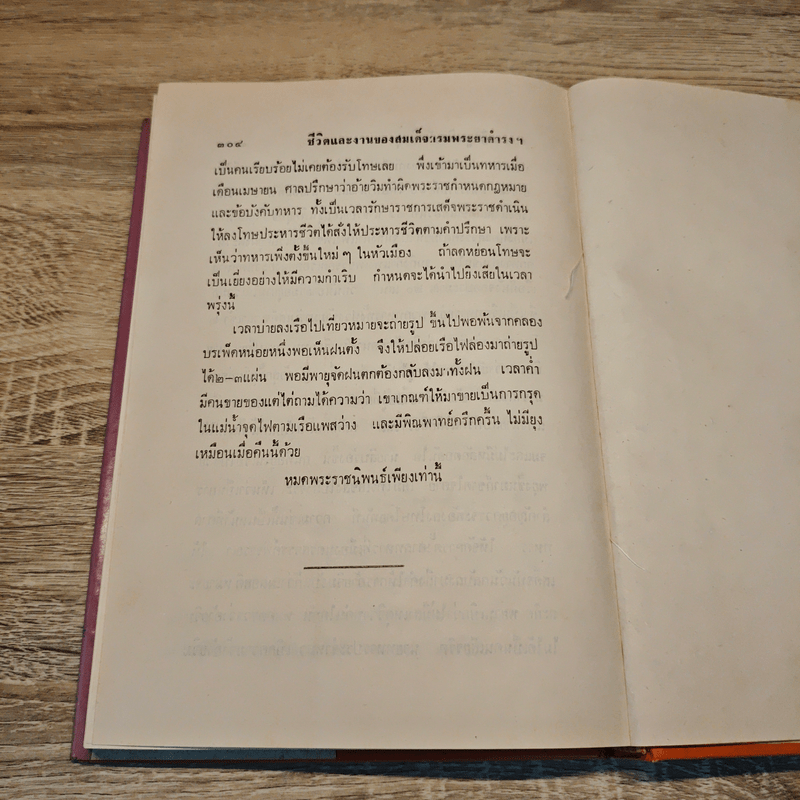 ๓๐๔ ชีวิตและงานของสมเด็จกรมพระยาดำรง ฯ
เป็นคนเรียบร้อยไม่เคยต้องรับโทษเลย พึ่งเข้ามาเป็นทหารเมื่อ
เดือนเมษายน ศาลปรึกษาว่าอ้ายวิมทำผิดพระราชกำหนดกฎหมาย
และข้อบังคับทหาร ทั้งเป็นเวลารักษาราชการเสด็จพระราชดำเนิน
ให้ลงโทษประหารชีวิตได้สั่งให้ประหารชีวิตตามคำปรึกษา เพราะ
เห็นว่าทหารเพิ่งตั้งขึ้นใหม่ ๆ ในหัวเมือง ถ้าลดหย่อนโทษจะ
เป็นเยี่ยงอย่างให้มีความกำเริบ กำหนดจะได้นำไปยิงเสียในเวลา
พรุ่งนี้
เวลาบ่ายลงเรือไปเที่ยวหมายจะถ่ายรูป ขึ้นไปพอพ้นจากคลอง
บรเพ็ดหน่อยหนึ่งพอเห็นฝนตั้ง จึงให้ปล่อยเรือไฟล่องมาถ่ายรูป
ได้๒-๓แผ่น พอมีพายุจัดฝนตกต้องกลับลงมาทั้งฝน เวลาค่ำ
มีคนขายของแต่ไต่ถามได้ความว่า เขาเกณฑ์ให้มาขายเป็นการกรุด
ในแม่น้ำจุดไฟตามเรือแพสว่าง และมีพิณพาทย์ครึกครื้น ไม่มียุง
เหมือนเมื่อคืนนี้ด้วย
หมดพระราชนิพนธ์เพียงเท่านี้